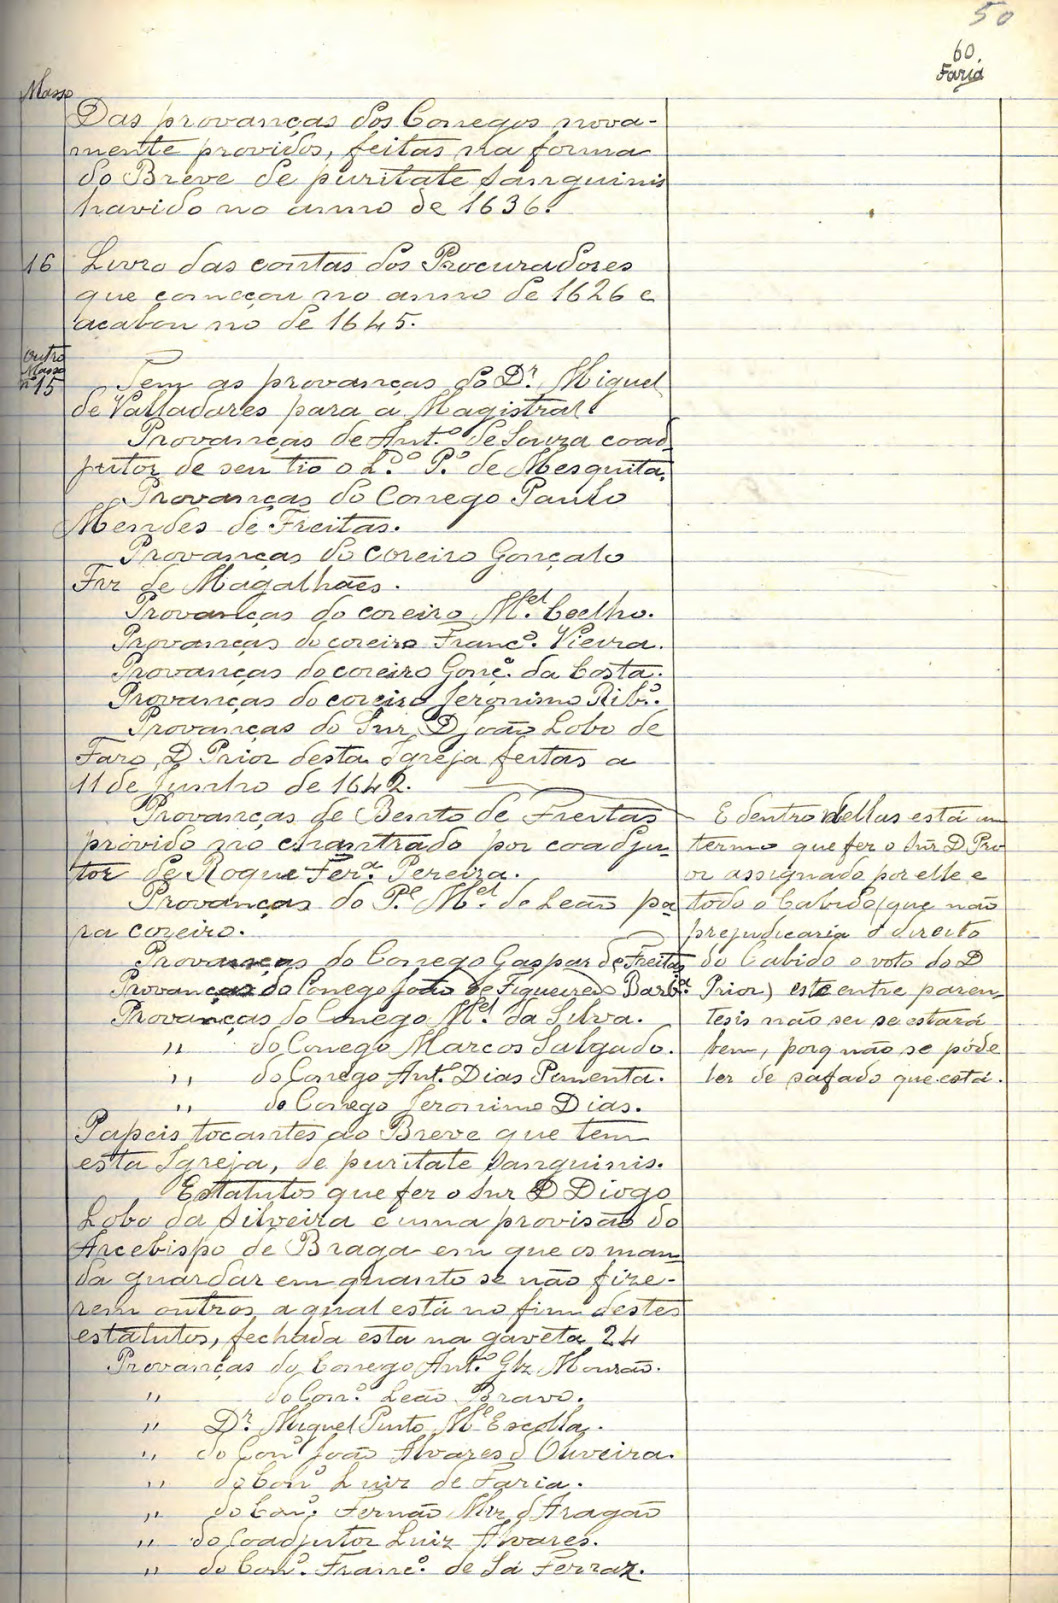 50
60.
Faria
Masso
Das provanças dos Conegos nova-
mente providos, feitas na forma
do Breve de puritate sanguinis
havido no anno de 1636.
16 Livro das contas dos Procuradores
que começou no anno de 1626 e
acabou no de 1645.
outro
Masso
nº 15
Tem as provanças do Dr. Miguel
de Valladares para a Magistral.
Provanças de Ant.º de Souza coad-
jutor de seu tio o L.do P.º de Mesquita.
Provanças do Conego Paulo
Mendes de Freitas.
Provanças do coreiro Gonçalo
Frz de Magalhães.
Provanças do coreiro M.el Coelho.
Provanças do coreiro Franc.º Vieira.
Provanças do coreiro Gonç.º da Costa.
Provanças do coreiro Jeronimo Rib.º.
Provanças do Snr. D João Lobo de
Faro, D Prior desta Igreja feitas a
11 de Junho de 1642.
Provanças de Bento de Freitas
provido no chantrado por coadju-
tor de Roque Fer.ª Pereira.
Provanças do P.e M.el de Leão pa-
ra coreiro.
Provanças do Conego Gaspar de Freitas
Provanças do Conego João de Figueiredo Barb.ª
Provanças do Conego M.el da Silva.
" do Conego Marcos Salgado.
" do Conego Ant.º Dias Pimenta.
" do Conego Jeronimo Dias.
Papeis tocantes ao Breve que tem
esta Igreja, de puritate sanguinis.
Estatutos que fez o Snr D Diogo
Lobo da Silveira e uma provisão do
Arcebispo de Braga em que os man-
da guardar em quanto se não fize-
rem outros, a qual está no fim destes
estatutos, fechada esta na gaveta 24
Provanças do Conego Ant.º Glz Mourão.
" do Con.º Leão Bravo.
" Dr. Miguel Pinto M.e Escolla.
" do Con.º João Alvares d Oliveira.
" do Con.º Luiz de Faria.
" do Con.º Fernão Mrz d Aragão
" do Coadjutor Luiz Alvares.
" do Con.º Franc.º de Sá Ferraz.
E dentro dellas está um
termo que fez o Snr D Pri-
or assignado por elle e
todo o Cabido (que não
prejudicaria o direito
do Cabido o voto do D
Prior) este entre paren-
tesis não sei se estará
bem, porq não se póde
ler de safado que está.